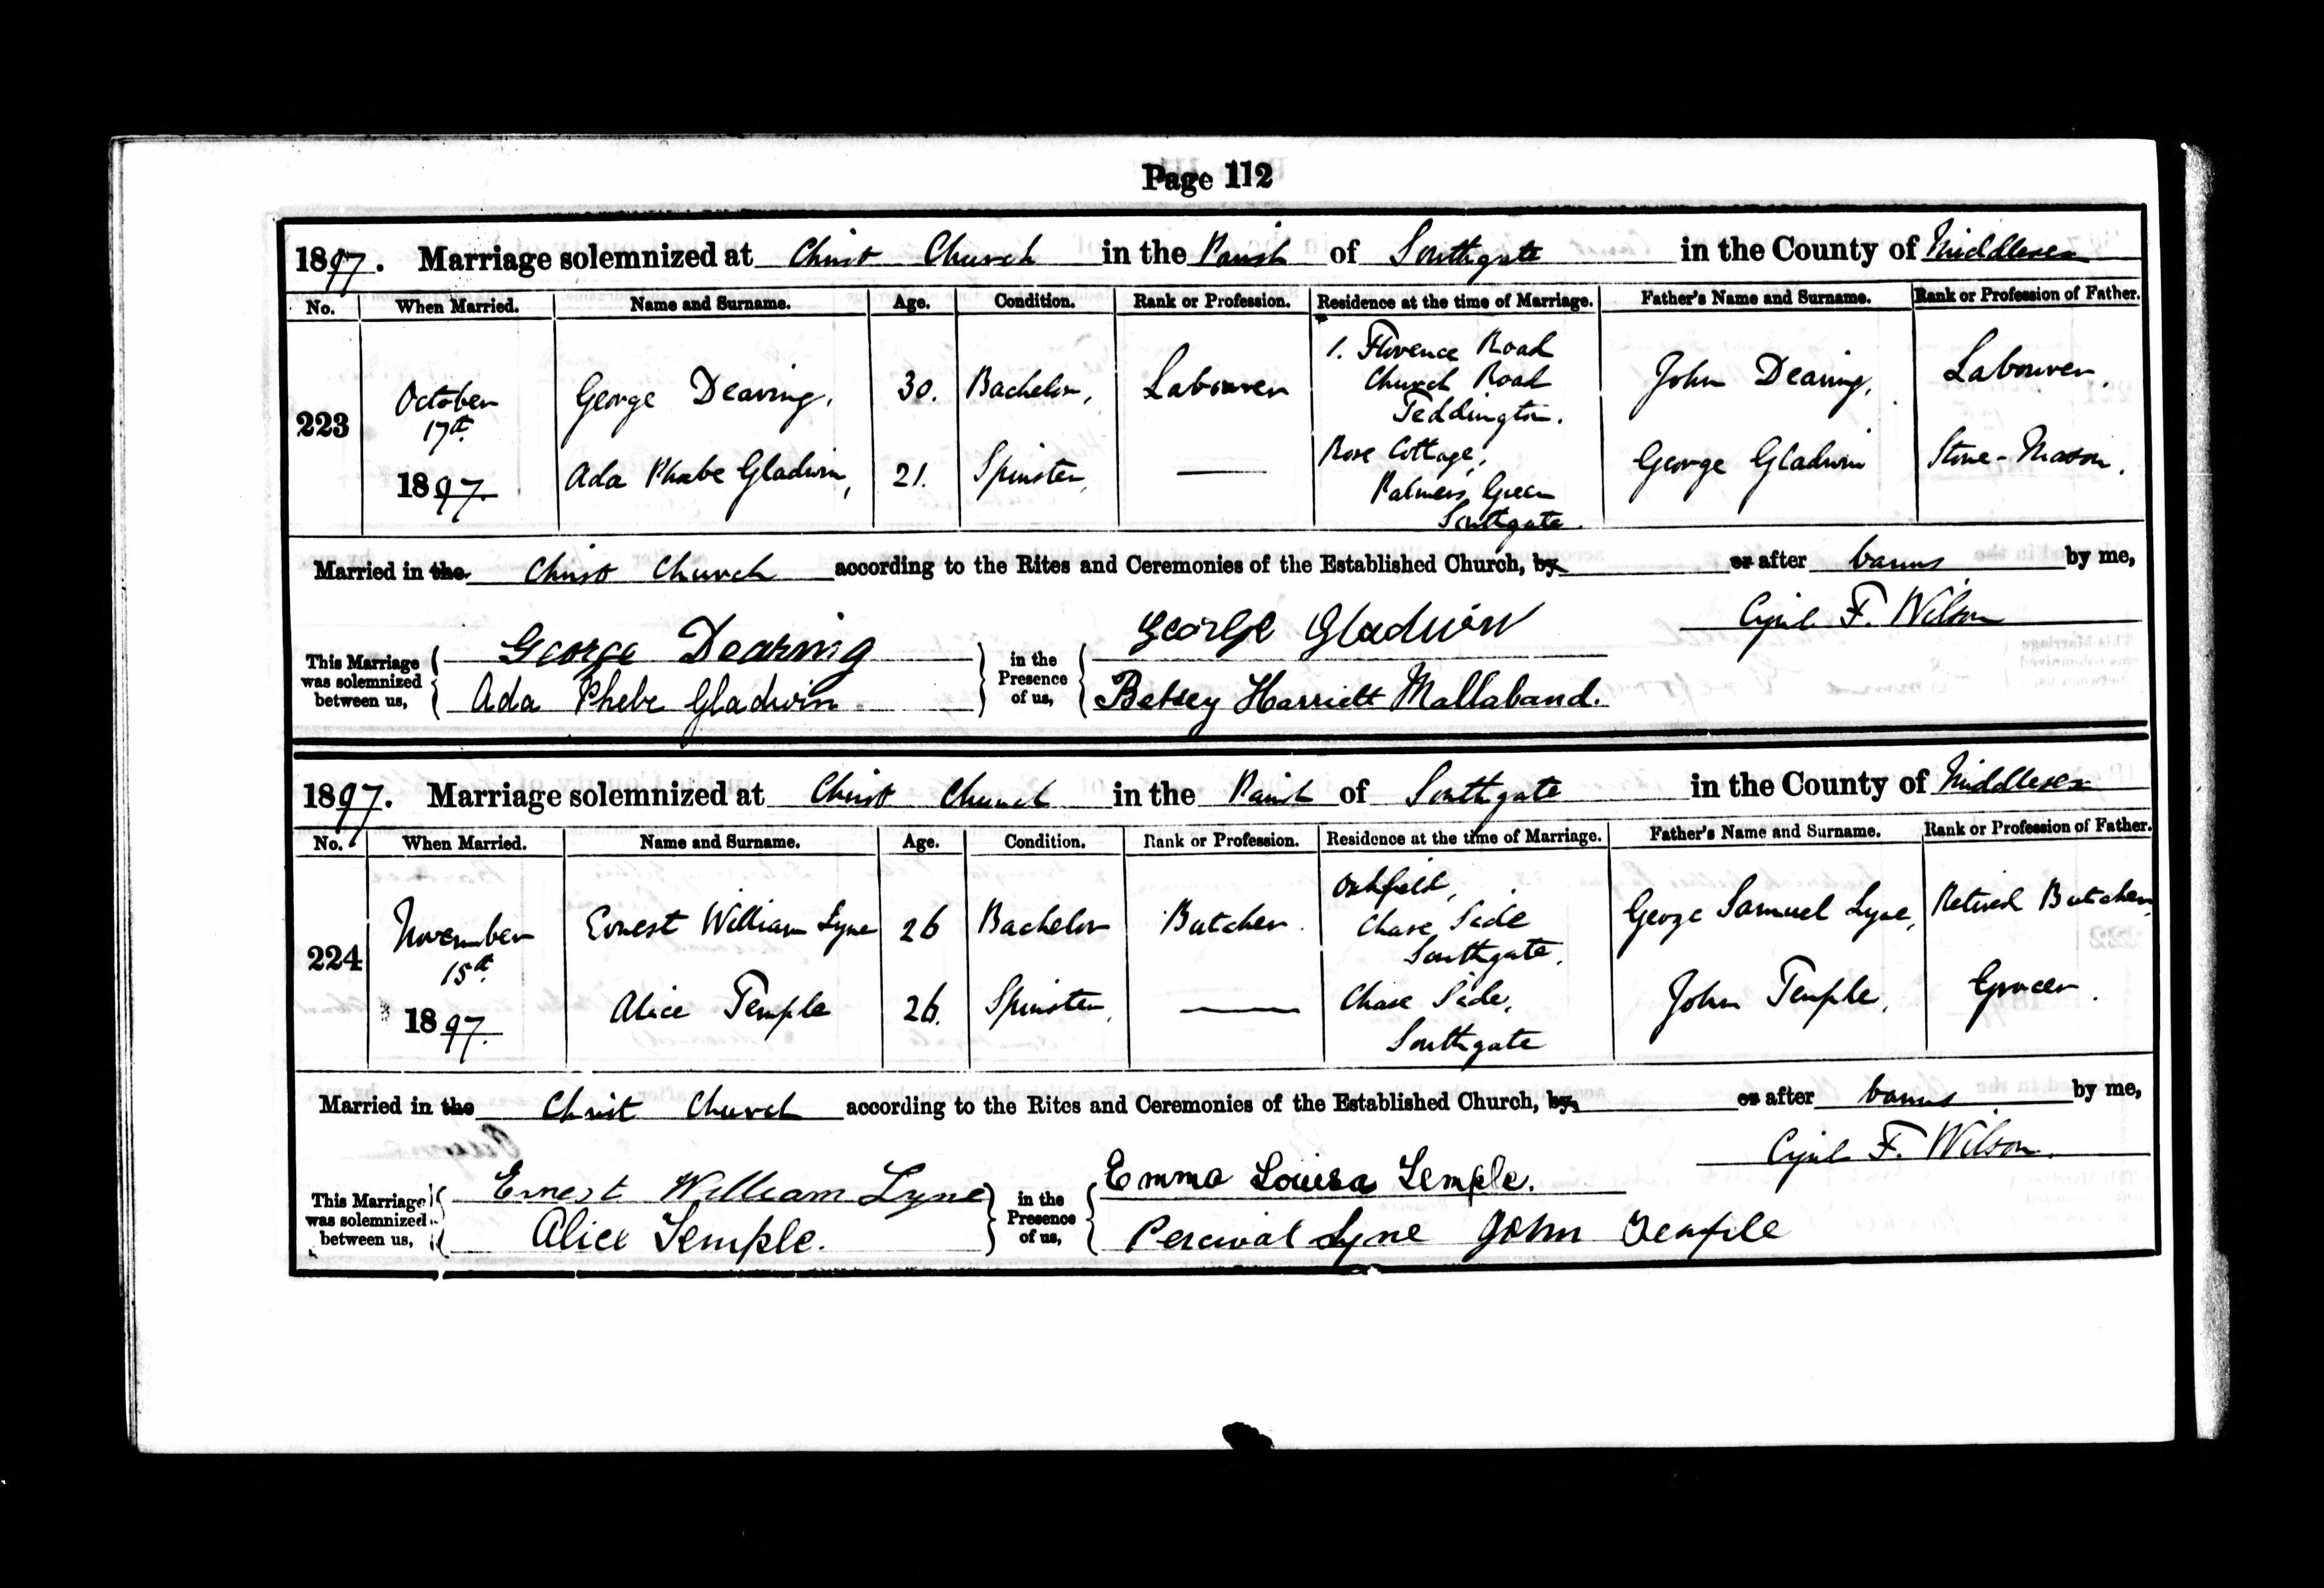 Page 112
1897. Marriage solemnized at Christ Church in the Parish of Southgate in the County of Middlesex
No. When Married. Name and Surname. Age. Condition. Rank or Profession. Residence at the time of Marriage. Father's Name and Surname. Rank or Profession of Father.
223 October 17th 1897. George Dearing, 30. Bachelor, Labourer 1. Florence Road Church Road Teddington. John Dearing, Labourer,
Ada Phœbe Gladwin, 21. Spinster, — Rose Cottage, Palmers Green Southgate. George Gladwin Stone-Mason.
Married in the Christ Church according to the Rites and Ceremonies of the Established Church, by or after banns by me,
Cyril F. Wilson
This Marriage was solemnized between us, George Dearing in the Presence of us, George Gladwin
Ada Phebe Gladwin Betsey Harriett Mallaband.
1897. Marriage solemnized at Christ Church in the Parish of Southgate in the County of Middlesex
No. When Married. Name and Surname. Age. Condition. Rank or Profession. Residence at the time of Marriage. Father's Name and Surname. Rank or Profession of Father.
224 November 15th 1897. Ernest William Lyne 26 Bachelor Butcher. Oakfield, Chase Side Southgate. George Samuel Lyne, Retired Butcher,
Alice Temple 26. Spinster, — Chase Side, Southgate John Temple, Grocer.
Married in the Christ Church according to the Rites and Ceremonies of the Established Church, by, or after banns by me,
Cyril F. Wilson.
This Marriage was solemnized between us, Ernest William Lyne in the Presence of us, Emma Louisa Temple.
Alice Temple. Percival Lyne John Temple